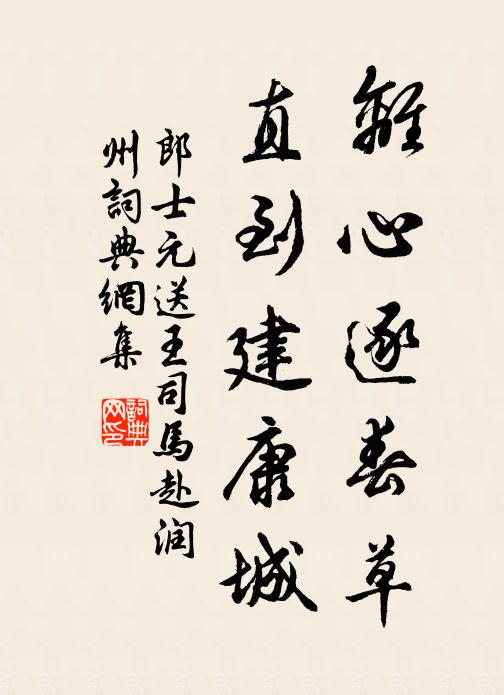 離心逐春草
直到建康城
郎士元送王司馬赴润
州詞典網集
詞典
网印